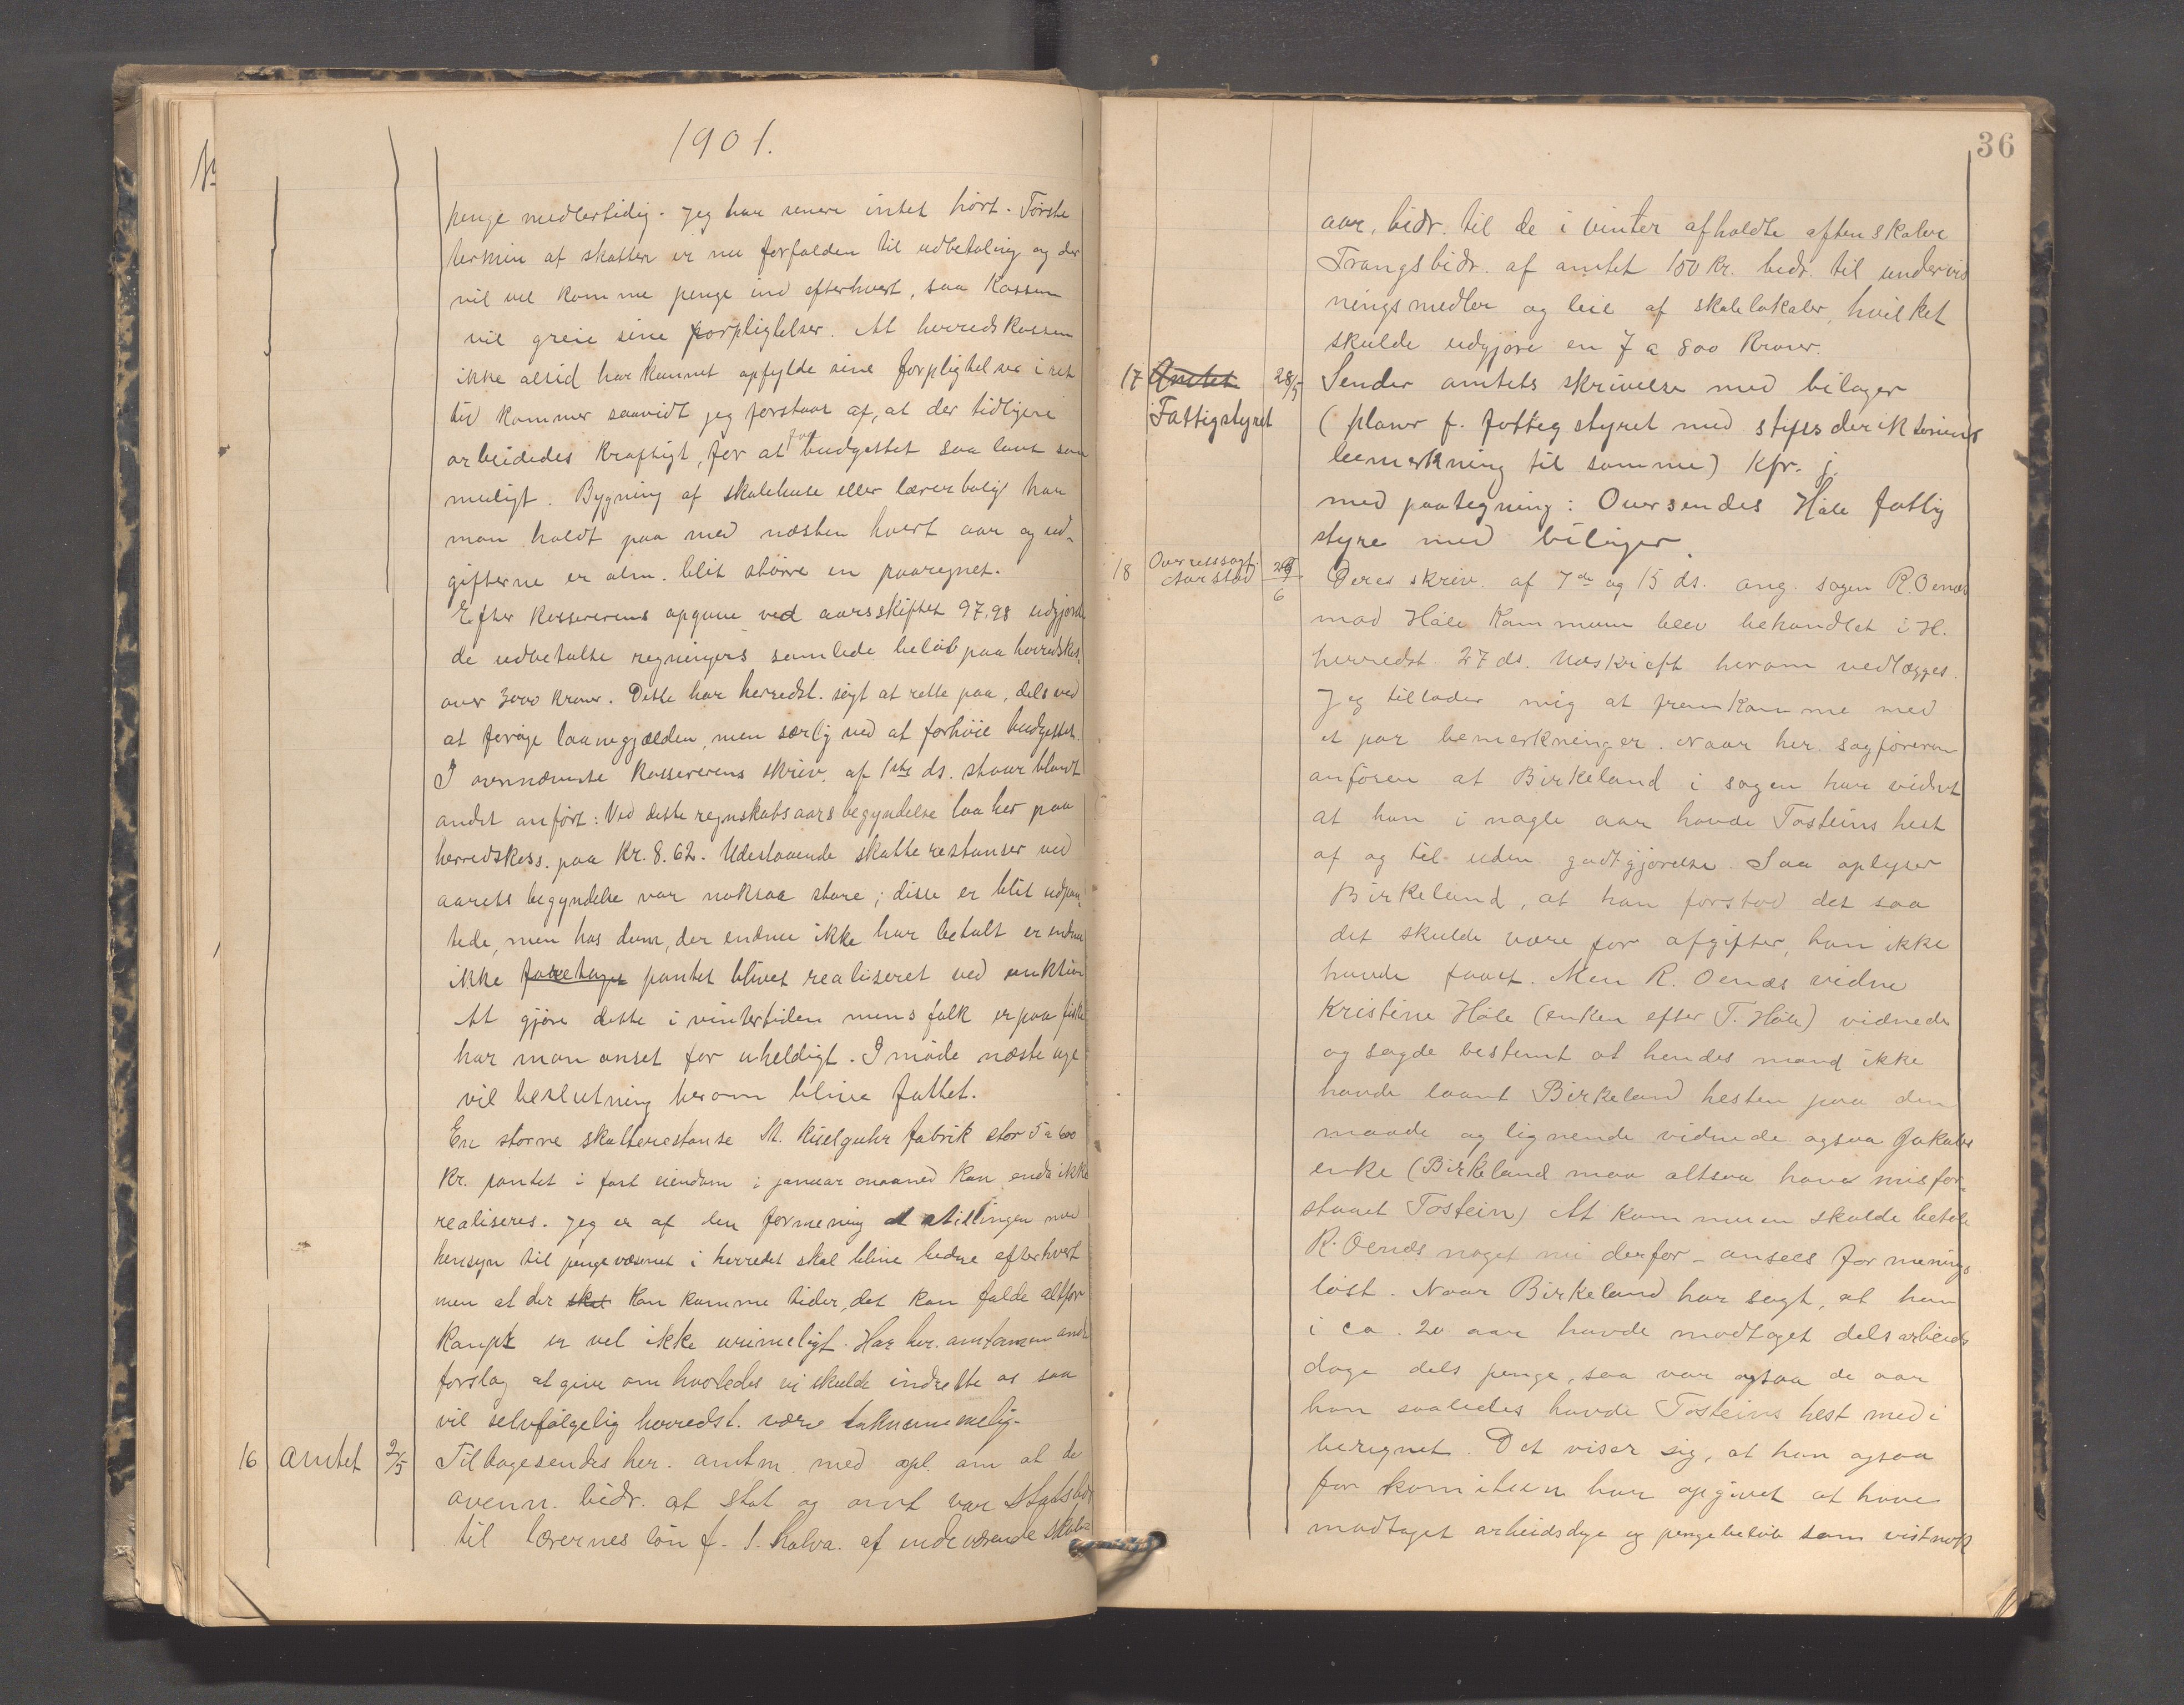 1901.
penge medlertidig. Jeg har senere intet hørt. Første
termin af skatten er nu forfalden til udbetaling og der
vil vel komme penge ind efterhvert, saa Kassen
vil greie sine forpligtelser. At herredskassen
ikke altid har kunnet opfylde sine forpligtelser i ret
tid kommer saavidt jeg forstaar af, at der tidligere
arbeidedes kraftigt, for at faa budgettet saa lavt som
muligt. Bygning af skolehuse eller lærerbolig har
man holdt paa med næsten hvert aar og ud-
gifterne er alm. blit større en paaregnet.
Efter Kassererens opgave ved aarsskiftet 97.98 udgjorde
de udbetalte regningers samlede beløb paa herredskas.
over 3000 kroner. Dette har herredst. søgt at rette paa, dels ved
at forøge laanegjælden, men særlig ved at forhøie budgettet.
I ovennævnte Kassererens skriv. af 1ste ds. staar blandt
andet anført: Ved dette regnskabsaars begyndelse laa her paa
herredskass. paa Kr. 8.62. Udestaaende skatterestanser ved
aarets begyndelse var noksaa store; disse er blit udpan-
tede, men hos dem, der endnu ikke har betalt er endnu
ikke pantet blivet realiseret ved auktion
At gjøre dette i vintertiden mens folk er paa fiske
har man anset for uheldigt. I møde næste uge
vil beslutning herom blive fattet.
En større skatterestanse St. Kiselguhr fabrik stor 5 a 600
Kr. pantet i fast eiendom i januar maaned kan enda ikke
realiseres. Jeg er af den formening at stillingen med
hensyn til pengevæsenet i herredet skal blive bedre efterhvert
men at der skal kan komme tider, det kan falde altfor
knapt er vel ikke urimeligt. Har hr. amtmanden andre
forslag at give om hvorledes vi skulde indrette os saa
vil selvfølgelig herredst. være taknemmelig.
16 Amtet 2/5 Tilbagesendes her. amtm. med opl. om at de
ovenn. bidr. at stat og amt var Statsbidr
til lærernes løn f. 1. halva. af indeværende skole
36
aar, bidr. til de i vinter afholdte aftenskoler
Trangsbidr. af amtet 150 Kr. bidr. til undervis
ningsmedler og leie af skolelokaler, hvilket
skulde udgjøre en 7 a 800 Kroner.
17 Amtet 28/5 Sender amtets skrivelse med bilager
Fattigstyret (planer f. fattigstyret med stiftsdirektionens
bemerkning til samme) Kfr. j.
med paategning: Oversendes Håle fattig
styre med bilager.
18 Overretssagf. Aarstad 29/6 Deres skriv. af 7de og 15 ds. ang. sagen R. Oenæs
mod Håle Kommune blev behandlet i H.
herredst. 27 ds. Udskrift herom vedlægges.
Jeg tillader mig at fremkomme med
et par bemerkninger. Naar her. sagføreren
anfører at Birkeland i sagen har vidnet
at han i nogle aar havde Tosteins hest
af og til uden godtgjørelse. Saa oplyser
Birkeland, at han forstod det saa
det skulde være for afgifter, han ikke
havde faaet. Men R. Oenæs vidne
Kristine Håle (enken efter T. Håle) vidnede
og sagde bestemt at hendes mand ikke
havde laant Birkeland hesten paa den
maade og lignende vidnede ogsaa Jakobs
enke (Birkeland maa altsaa have misfor-
staaet Tostein) At kommunen skulde betale
R. Oenæs noget nu derfor - ansees for menings
løst. Naar Birkeland har sagt, at han
i ca. 20 aar havde modtaget dels arbeids
dage dels penge, saa var ogsaa de aar
han saaledes havde Tosteins hest med i
beregnet. Det viser sig, at han ogsaa
for komiteen har opgivet at have
modtaget arbeidsdage og pengebeløb som vistnok